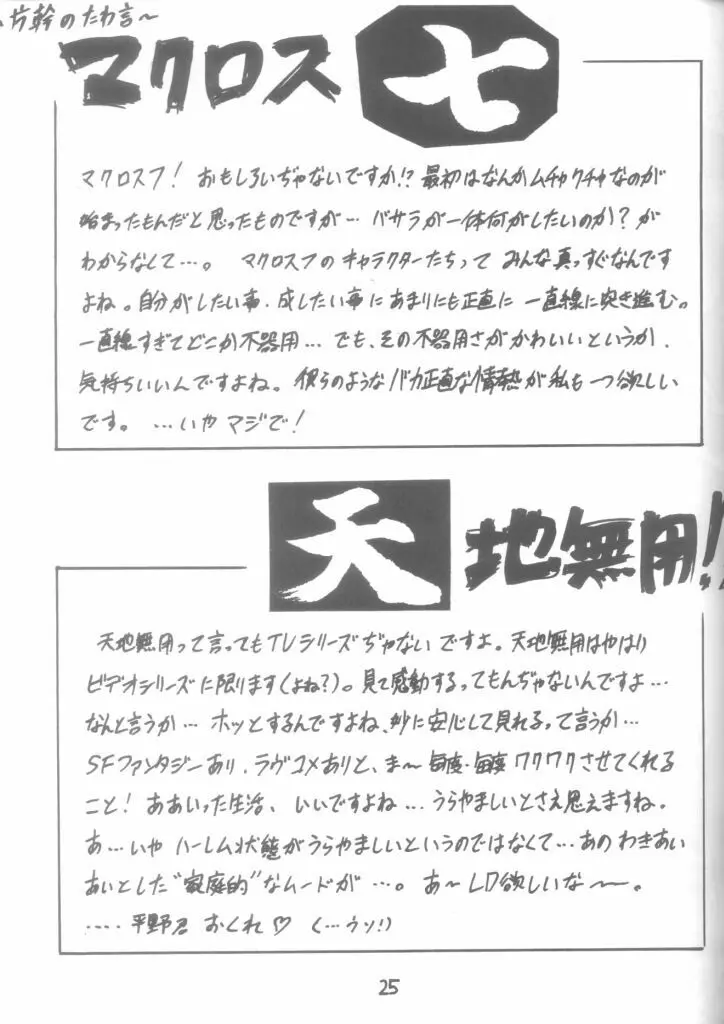 片幹のたわ言～
マクロス七
マクロス7! おもしろいぢゃないですか!? 最初はなんかムチャクチャなのが
始まったもんだと思ったものですが… バサラが一体何がしたいのか? が
わからなくて…。 マクロス7のキャラクターたちって みんな真っすぐなんです
よね。自分がしたい事・成したい事にあまりにも正直に 一直線に突き進む。
一直線すぎてどこか不器用… でも、その不器用さがかわいいというか、
気持ちいいんですよね。彼らのようなバカ正直な情熱が私も一つ欲しい
です。 …いや マジで!
天地無用!
天地無用って言ってもTVシリーズぢゃないですよ。天地無用はやはり
ビデオシリーズに限ります(よね?)。見て感動するってもんぢゃないんですよ…
なんと言うか… ホッとするんですよね、妙に安心して見れるって言うか…
SFファンタジーあり、ラヴコメありと、ま～毎度・毎度ワクワクさせてくれる
こと! ああいった生活、いいですよね… うらやましいとさえ思えますね。
あ…いや ハーレム状態がうらやましいというのではなくて…あの わきあい
あいとした“家庭的”なムードが …。 あ～LD欲しいな～。
…‥平野君 おくれ♡ (…ウソ!)
25